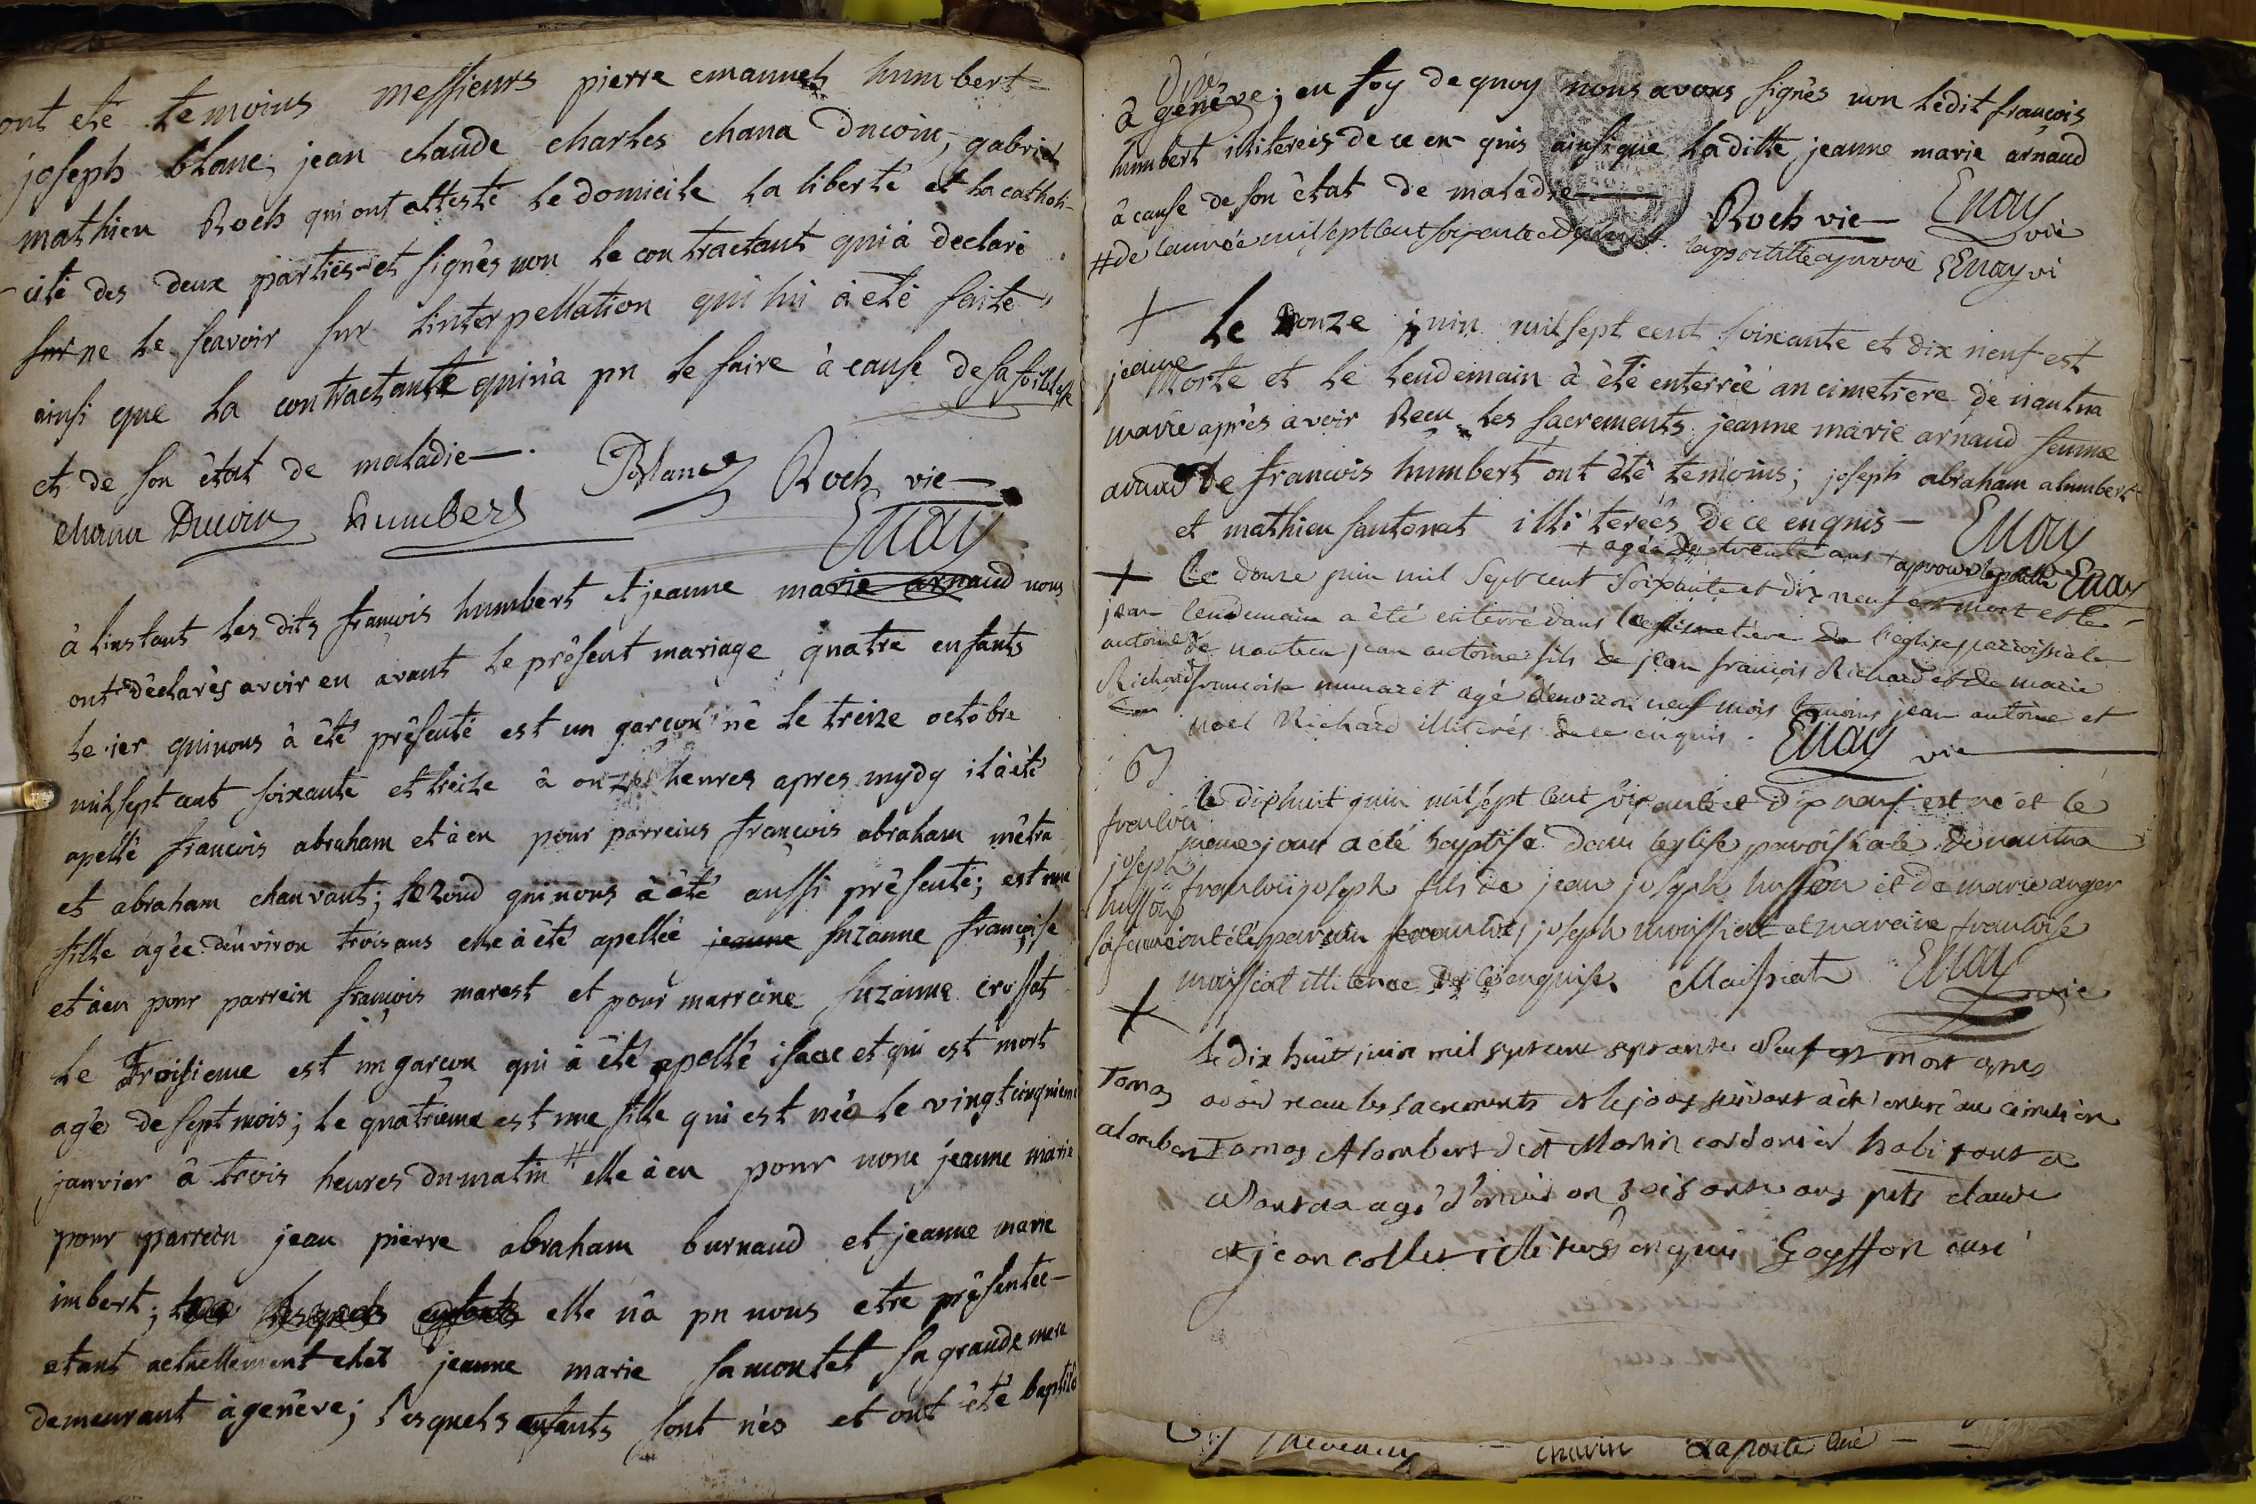 ont eté temoins messieurs pierre emanuel humbert=
joseph blanc, jean claude charles chana Ducoin, gabriel
mathieu Roch qui ont attesté le domicile la liberté et la catholi-
-cité des deux parties et signés non le contractant qui à declaré
sur ne le scavoir sur linterpellation qui lui à eté faite
ainsi que la contractante qui n'a pu le faire à cause de sa foiblesse
et de son ètat de maladie—.
Blanc Roch vic—
chana Ducoin humbert
Enay
à linstant les dits francois humbert et jeanne marie arnaud nous
ont dèclarès avoir eu avant le prèsent mariage quatre enfants
le ier qui nous à èté prèsenté est un garcon nè le treize octobre
mil sept cent soixante et treize à onze heures apres mydy il à èté
apellé francois abraham et à eu pour parreins francois abraham mètra
et abraham chauvant; le 2ond qui nous à èté aussi prèsenté; est une
fille agèe d'environ trois ans elle à èté apellèe jeanne suzanne françoise
et à eu pour parrein françois marest et pour marreine suzanne crossat
le Troisieme est un garcon qui à èté apellé isaac et qui est mort
agè de sept mois; le quatrieme est une fille qui est nèe le vingt cinquieme
janvier à trois heures du matin # elle à eu pour nom jeanne marie
pour parrein jean pierre abraham burnaud et jeanne marie
imbert; tous lesquels enfants elle n'à pu nous etre prèsentèe—
etant actuellement chez jeanne marie samontet sa grande mere
demeurant à genève; lesquels enfants sont nés et ont èté baptisés
à genève; en foy de quoy nous avons signès non ledit françois
humbert illiterès de ce en quis ainsi que laditte jeanne marie arnaud
à cause de son ètat de maladie—
Roch vic— Enay vic
# de lannèe mil sept cent soixante et dix neuf. lapostille aprouvé Enay vi
+ le onze juin mil sept cent soixante et dix neuf est
jeanne morte et le lendemain à èté enterrèe au cimetiere de nantua
marie après avoir Recu les sacrements jeanne marie arnaud femme
arnaud de francois humbert ont èté temoins; joseph abraham alumbert
et mathieu santonat illiterèes de ce en quis— Enay
+ agèe de trente ans + aprouvé lapostille Enay
+ Le douze juin mil sept cent soixante et dix neuf est mort et le
jean lendemain a été enterré dans le cimetiere de l'église paroissiale
antoine de nantua jean antoine fils de jean françois Richard et de marie
Richard françoise munaret agé denviron neuf mois temoins jean antoine et
noel Richard illiterés de ce enquis. Enay vic
le dixhuit juin mil sept cent soixante et dix neuf est né et le
francois meme jour a eté baptisé dans leglise paroissiale de nantua
joseph francois joseph fils de jean joseph husson et de marie auger
husson sa femme ont été parrain joseph moissiat et maraine francoise
moissiat illiteree de ce enquise. Maissiat Enay vic
+ le dix huit juin mil sept cent septante neuf est mort apres
Tomas avoir recu les sacrements et le jour suivant a été enterré au cimetiere
alombert Tomas Alombert dit Martin cordonier habitant a
Nantua agé d'environ soisante ans pnts claude
et jean collet illiterés enquis Goyffon curé
chavin Laporte curé